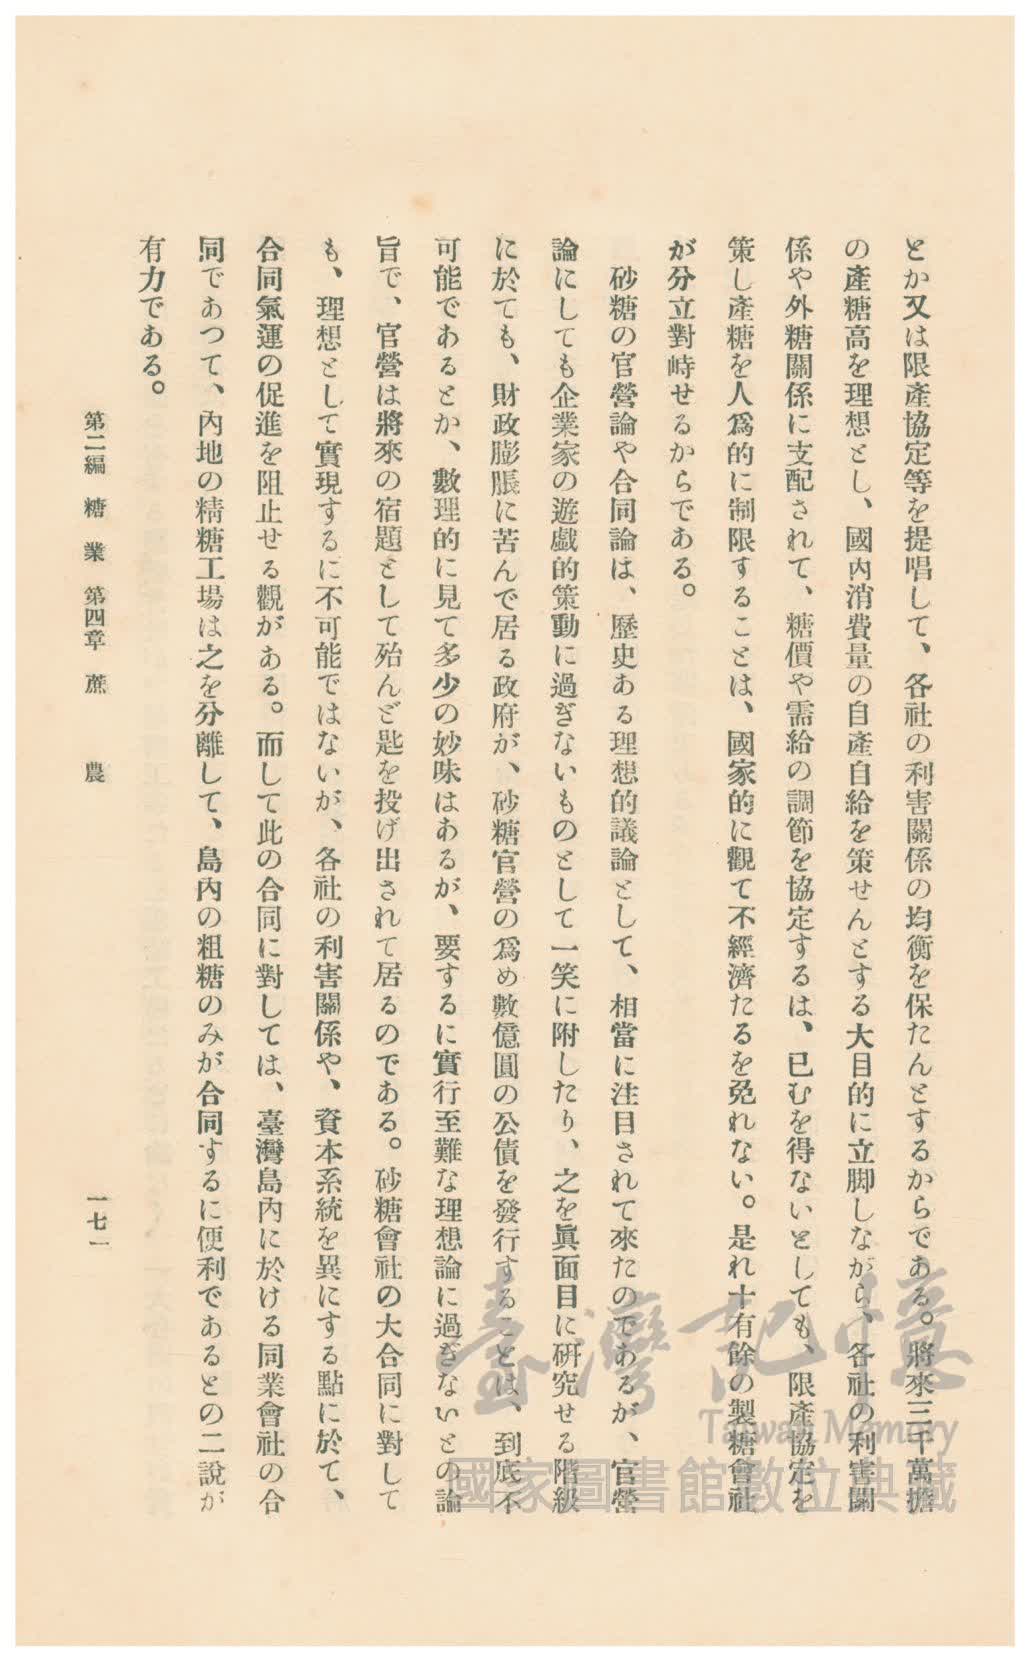 とか又は限產協定等を提唱して、各社の利害關係の均衡を保たんとするからである。將來三千萬擔
の產糖高を理想とし、國內消費量の自產自給を策せんとする大目的に立脚しながら、各社の利害關
係や外糖關係に支配されて、糖價や需給の調節を協定するは、已むを得ないとしても、限產協定を
策し產糖を人爲的に制限することは、國家的に觀て不經濟たるを免れない。是れ十有餘の製糖會社
が分立對峙せるからである。
砂糖の官營論や合同論は、歷史ある理想的議論として、相當に注目されて來たのであるが、官營
論にしても企業家の遊戲的策動に過ぎないものとして一笑に附したり、之を眞面目に硏究せる階級
に於ても、財政膨脹に苦んで居る政府が、砂糖官營の爲め數億圓の公債を發行することは、到底不
可能であるとか、數理的に見て多少の妙味はあるが、要するに實行至難な理想論に過ぎないとの論
旨で、官營は將來の宿題として殆んど匙を投げ出されて居るのである。砂糖會社の大合同に對して
も、理想として實現するに不可能ではないが、各社の利害關係や、資本系統を異にする點に於て、
合同氣運の促進を阻止せる觀がある。而して此の合同に對しては、臺灣島內に於ける同業會社の合
同であつて、內地の精糖工場は之を分離して、島內の粗糖のみが合同するに便利であるとの二說が
有力である。
第二編 糖業 第四章 蔗農
一七一
臺灣記憶
Taiwan Memory
國家圖書館數位典藏